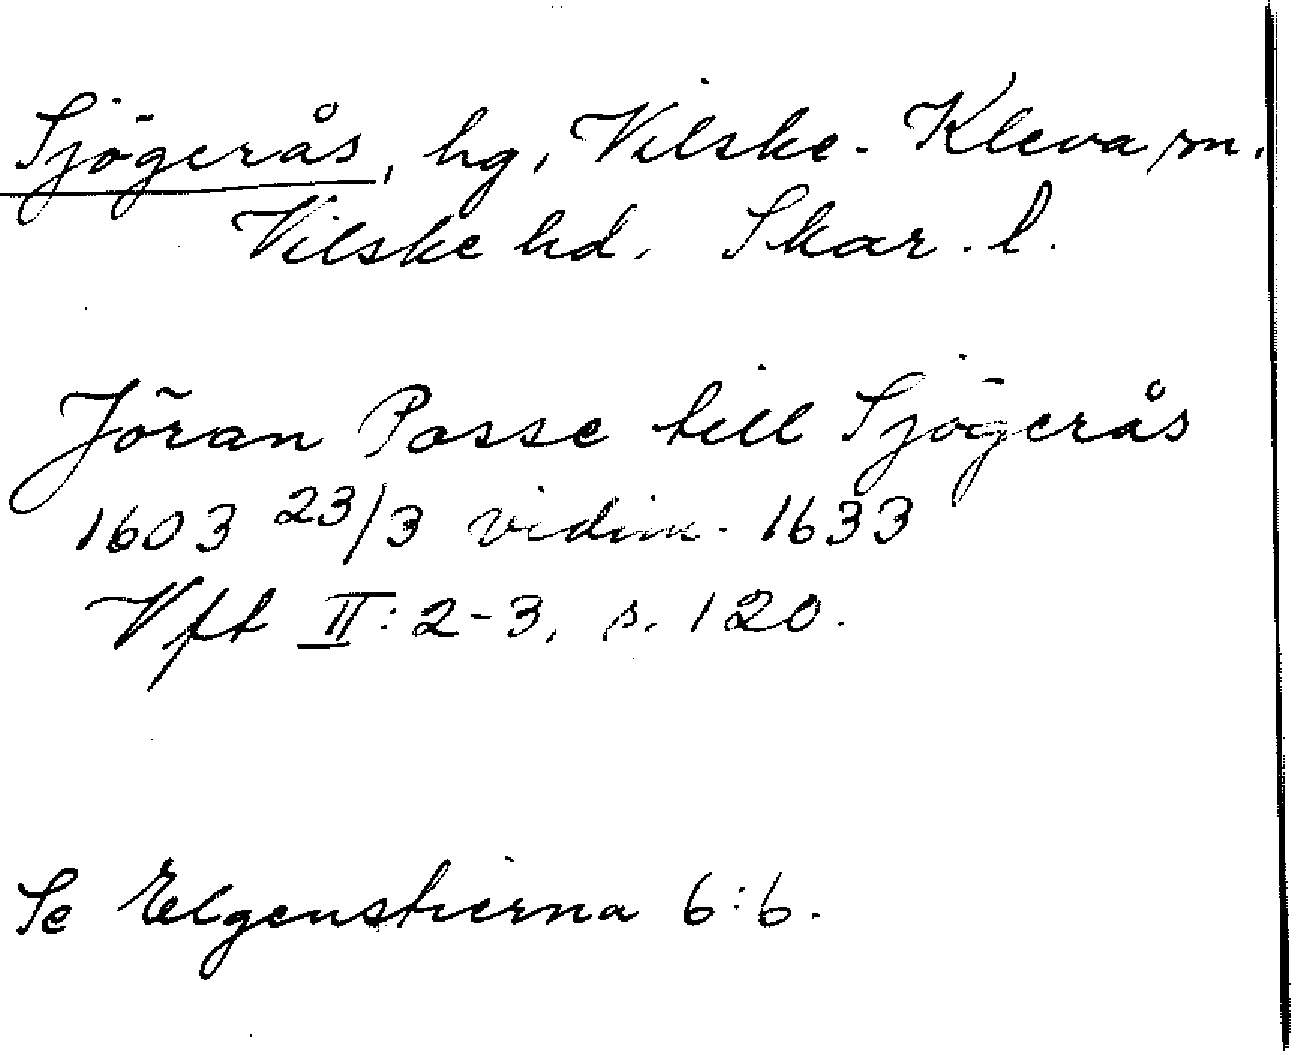 Sjögerås, hg, Vilske-Kleva sn.
Vilske hd. Skar. l.
Jöran Posse till Sjögerås
1603 23/3 vidim. 1633
Vft II: 2-3, s. 120.
Se Elgenstierna 6:6.